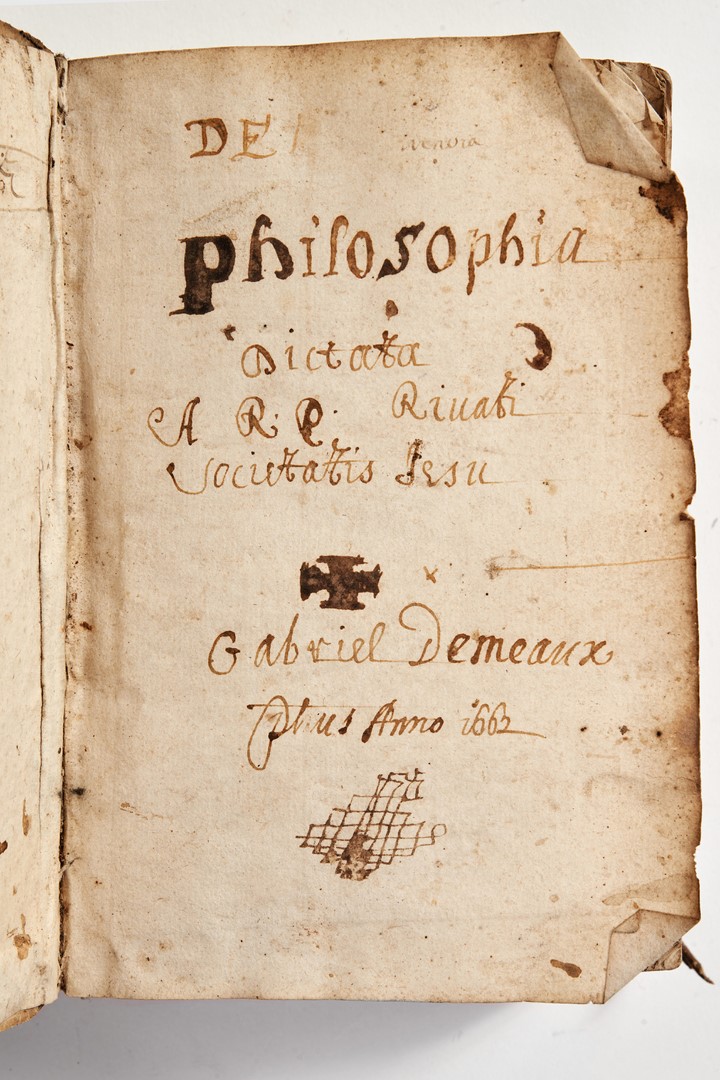 DE
philosophia
Dictata
A R. P. Rivati
Societatis Jesu
Gabriel Demeaux
Anno 1662